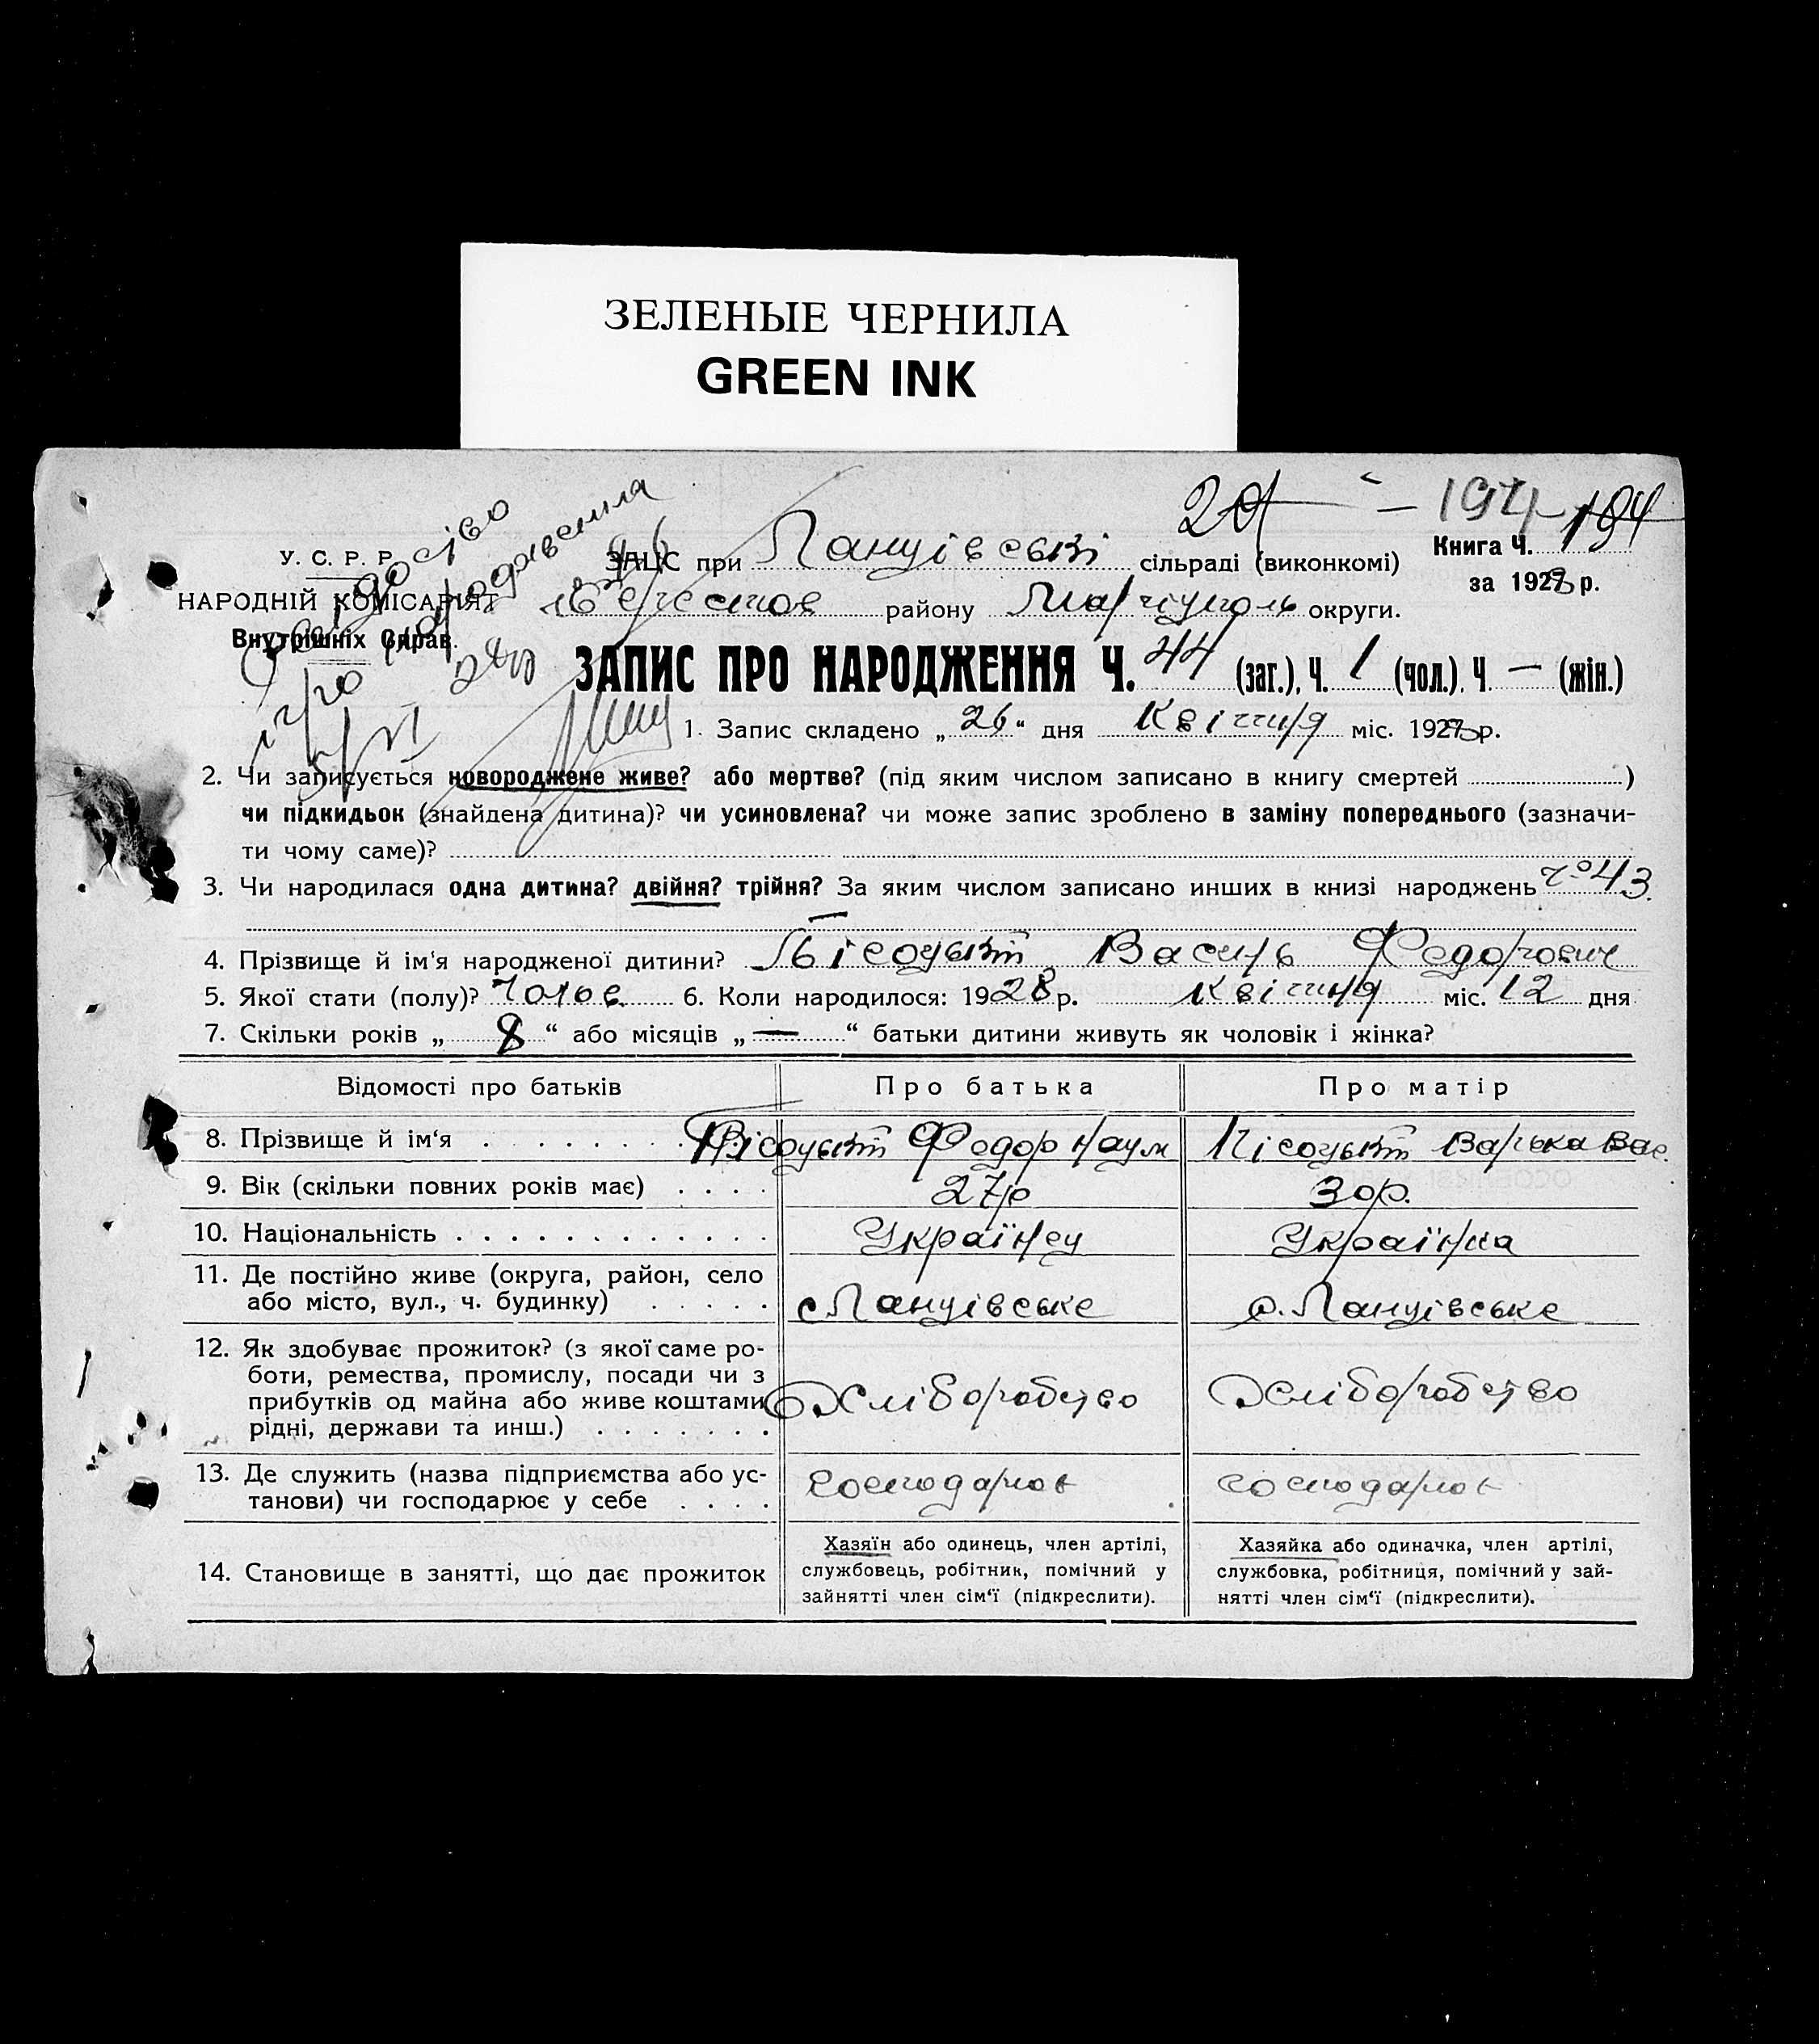 ЗЕЛЕНЫЕ ЧЕРНИЛА
GREEN INK
194 194
У. С. Р. Р. ЗАЦС при Ланцівські сільраді (виконкомі) Книга Ч.
НАРОДНІЙ КОМІСАРІЯТ Берестов району Маріуполь округи. за 1928 р.
Внутрішніх Справ.
Свідоцтво
про народження
ЗАПИС ПРО НАРОДЖЕННЯ Ч. 44 (заг.), Ч. 1 (чол.), Ч. — (жін.)
1. Запис складено „26“ дня Квітня міс. 1928 р.
2. Чи записується новороджене живе? або мертве? (під яким числом записано в книгу смертей )
чи підкидьок (знайдена дитина)? чи усиновлена? чи може запис зроблено в заміну попереднього (зазначи-
ти чому саме)?
3. Чи народилася одна дитина? двійня? трійня? За яким числом записано инших в книзі народжень 43.
4. Прізвище й ім'я народженої дитини? Пісоцькіт Василь Федорович
5. Якої стати (полу)? Чолов. 6. Коли народилося: 1928 р. Квітня міс. 12 дня
7. Скільки років „ 8 “ або місяців „ — “ батьки дитини живуть як чоловік і жінка?
Відомості про батьків Про батька Про матір
8. Прізвище й ім'я Пісоцькіт Федор Наум Пісоцькіт Варька Вас.
9. Вік (скільки повних років має) 27р 30р.
10. Національність Українец Украінка
11. Де постійно живе (округа, район, село
або місто, вул., ч. будинку) с Ланцівське с. Ланцівське
12. Як здобуває прожиток? (з якої саме ро-
боти, ремества, промислу, посади чи з
прибутків од майна або живе коштами Хліборобство Хліборобство
рідні, держави та инш.)
13. Де служить (назва підприємства або ус-
танови) чи господарює у себе
14. Становище в занятті, що дає прожиток
Хазяїн або одинець, член артілі,
службовець, робітник, помічний у
зайнятті член сім'ї (підкреслити).
Хазяйка або одиначка, член артілі,
службовка, робітниця, помічний у зай-
нятті член сім'ї (підкреслити).